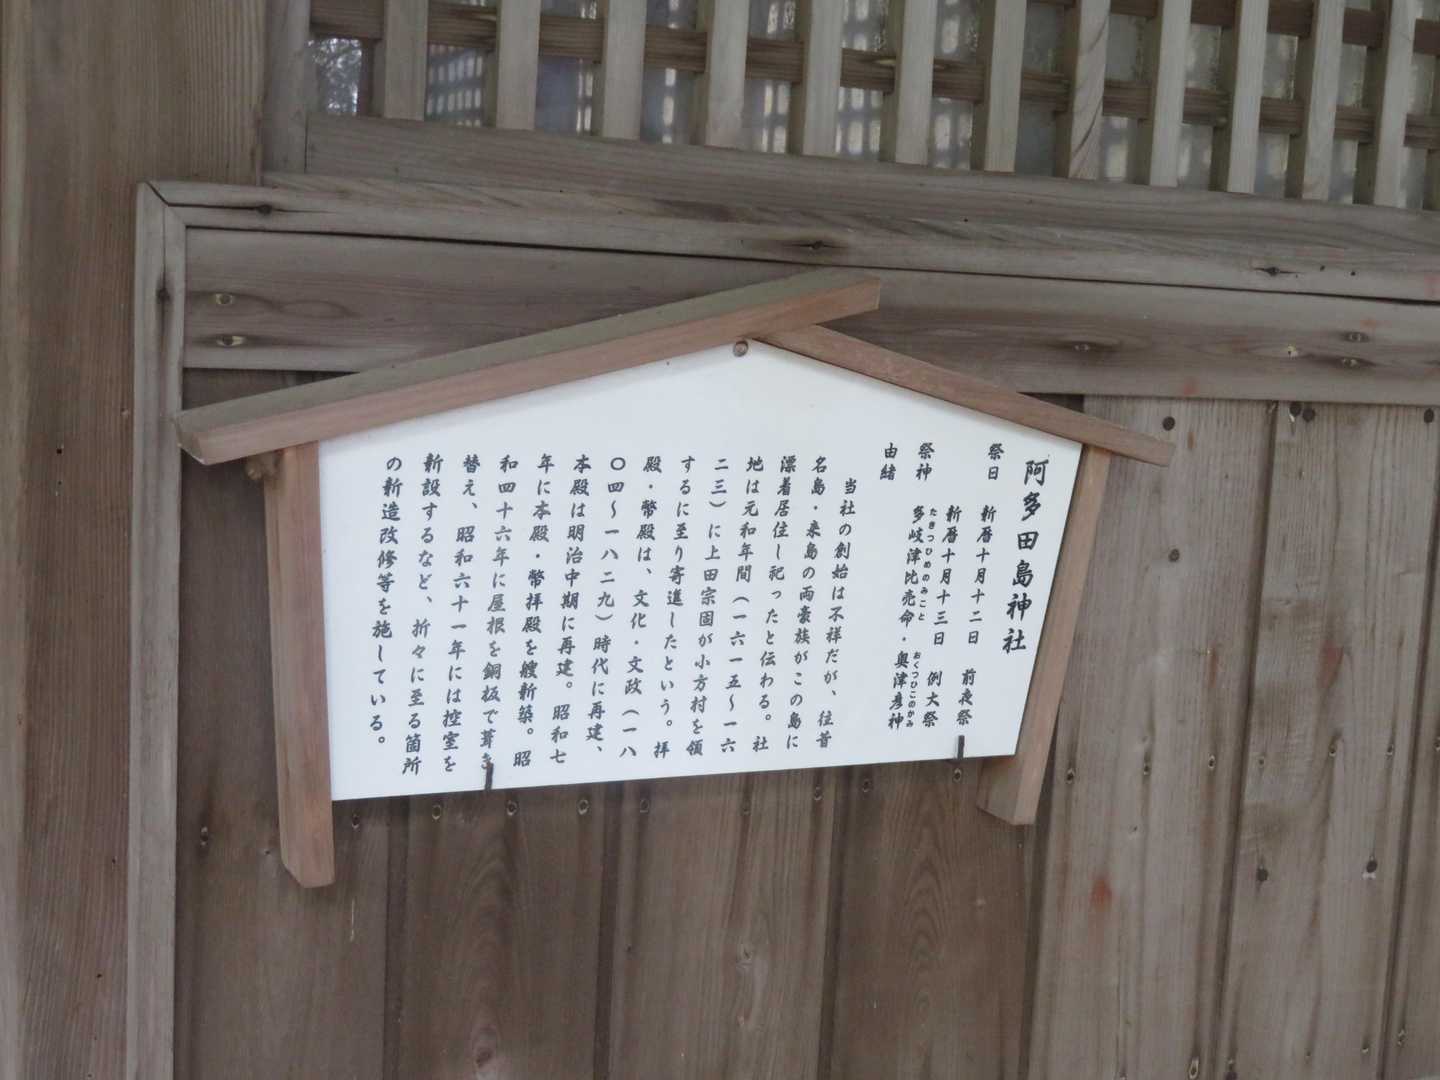 阿多田島神社
祭日　新暦十月十二日　前夜祭
新暦十月十三日　例大祭
たきつひめのみこと　おくつひこのかみ
祭神　多岐津比売命・奥津彦神
由緒
当社の創始は不祥だが、往昔
名島・来島の両豪族がこの島に
漂着居住し祀ったと伝わる。社
地は元和年間（一六一五〜一六
二三）に上田宗固が小方村を領
するに至り寄進したという。拝
殿・幣殿は、文化・文政（一八
〇四〜一八二九）時代に再建、
本殿は明治中期に再建。昭和七
年に本殿・幣拝殿を艘新築。昭
和四十六年に屋根を銅板で葺き
替え、昭和六十一年には控室を
新設するなど、折々に至る箇所
の新造改修等を施している。